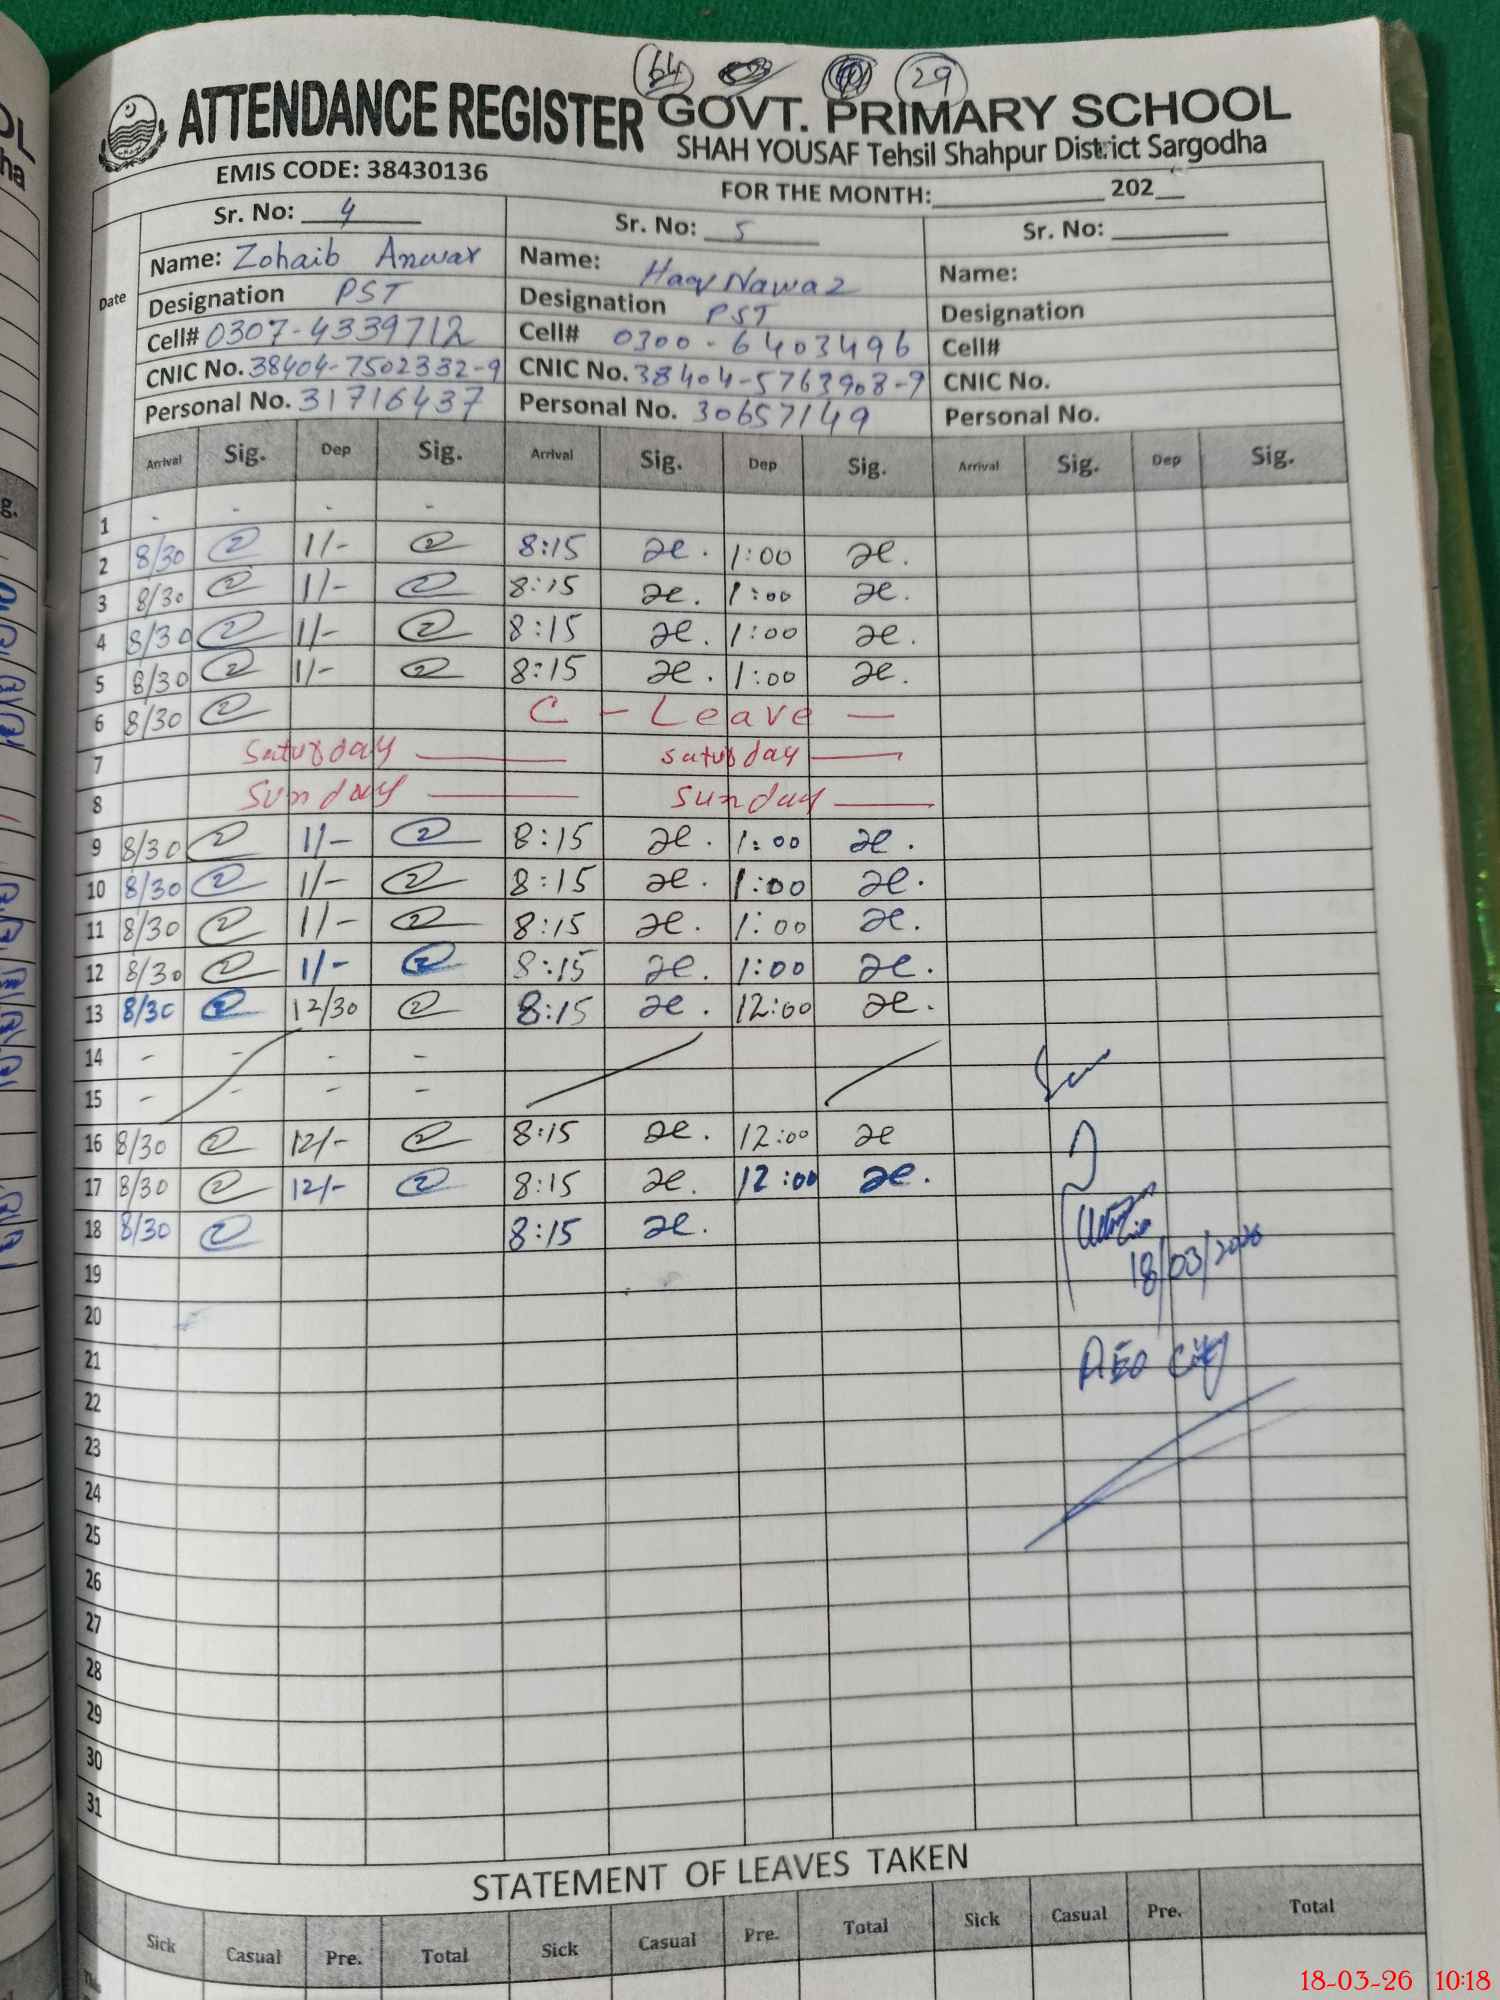 64 29
ATTENDANCE REGISTER GOVT. PRIMARY SCHOOL
SHAH YOUSAF Tehsil Shahpur District Sargodha
EMIS CODE: 38430136
FOR THE MONTH: 202
Sr. No: 4 Sr. No: 5 Sr. No:
Date
Name: Zohaib Anwar Name: Haq Nawaz Name:
Designation PST Designation PST Designation
Cell# 0307-4339712 Cell# 0300-6403496 Cell#
CNIC No. 38404-7502332-9 CNIC No. 38404-5763908-9 CNIC No.
Personal No. 31716437 Personal No. 30657149 Personal No.
Arrival Sig. Dep Sig. Arrival Sig. Dep Sig. Arrival Sig. Dep Sig.
1 - - - -
2 8/30 1/- 8:15 1:00
3 8/30 1/- 8:15 1:00
4 8/30 1/- 8:15 1:00
5 8/30 1/- 8:15 1:00
6 8/30 C - Leave —
7 Saturday — Saturday —
8 Sunday — Sunday —
9 8/30 1/- 8:15 1:00
10 8/30 1/- 8:15 1:00
11 8/30 1/- 8:15 1:00
12 8/30 1/- 8:15 1:00
13 8/30 12/30 8:15 12:00
14 - - - -
15 - - - -
16 8/30 12/- 8:15 12:00
17 8/30 12/- 8:15 12:00
18 8/30 8:15
18/03/2026
19
20
21
AEO City
22
23
24
25
26
27
28
29
30
31
STATEMENT OF LEAVES TAKEN
Sick Casual Pre. Total Sick Casual Pre. Total Sick Casual Pre. Total
18-03-26 10:18